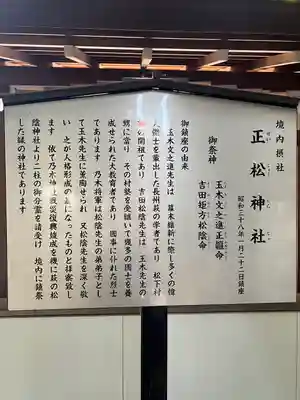 境内摂社
正松神社
せいしょうじんじゃ
昭和三十八年一月二十二日鎮座
御祭神
玉木文之進正韞命
吉田矩方松陰命
御鎮座の由来
玉木文之進先生は 幕末維新に際し多くの偉
人傑士を輩出した長州萩の学者であり 松下村
塾の開祖であり 吉田松陰先生は 玉木先生の
甥に当り その村塾を受継いで幾多の国士を養
成せられた大教育者であり 国事に仆れた烈士
であります 乃木将軍は松陰先生の弟弟子とし
て玉木先生に薫陶せられ 又松陰先生を深く敬
い 之が人格形成の基になったものと拝察致し
ます 依て乃木神社戦災復興竣成を機に萩の松
陰神社より二柱の御分霊を請受け 境内に鎮祭
した縁の神社であります